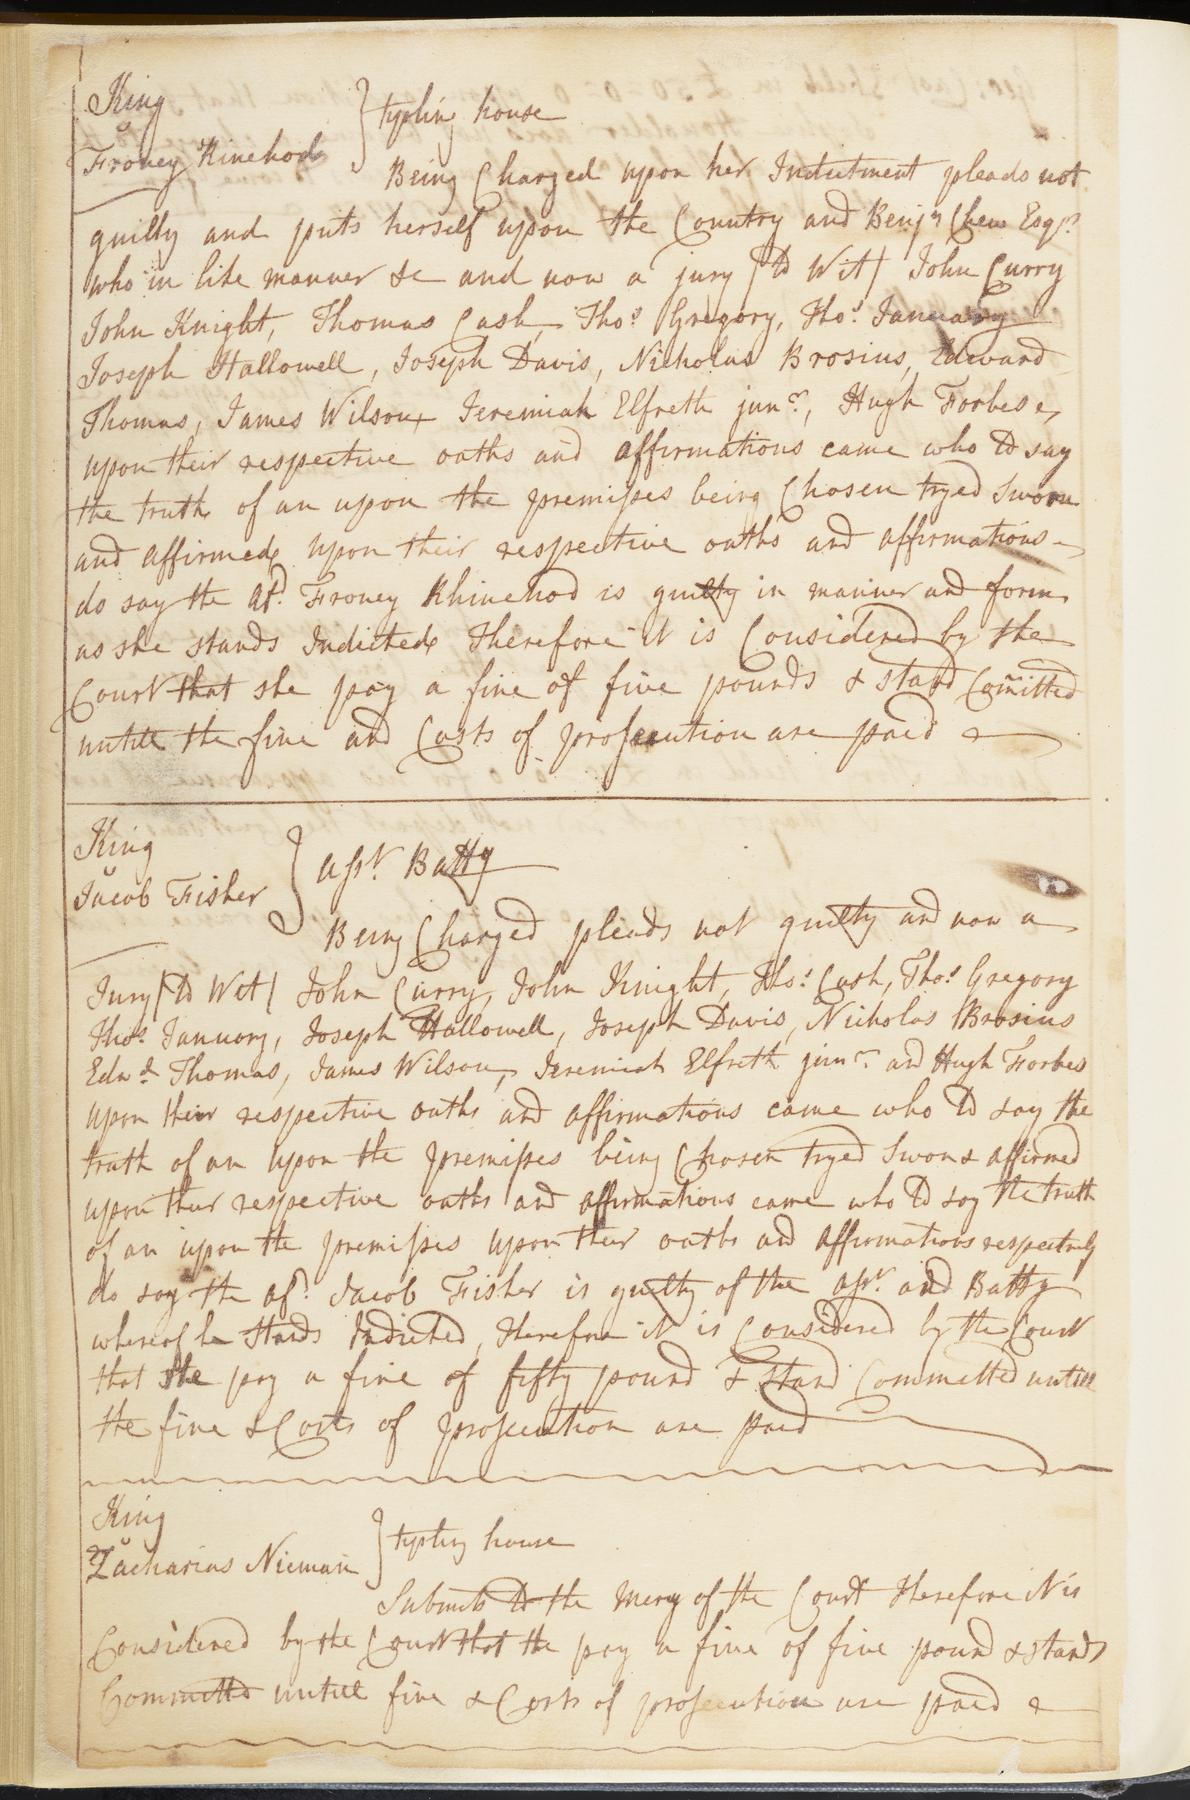 King
v
Froney Rinehod } tipling house
Being Charged upon her Indictment pleads not
guilty and puts herself upon the Country and Benjn Chew Esqr
who in like manner &c and now a jury (to Wit) John Curry
John Knight, Thomas Cash, Thos. Gregory, Thos. January
Joseph Hallowell, Joseph Davis, Nicholas Brosius, Edward
Thomas, James Wilson, Jeremiah Elfreth junr., Hugh Forbes,
upon their respective oaths and affirmations came who to say
the truth of an upon the premisses being Chosen tryed Sworn
and affirmed upon their respective oaths and affirmations
do say the afd. Froney Rhinehod is guilty in manner and form
as she stands Indicted Therefore it is Considered by the
Court that she pay a fine of five pounds & stand Comitted
untill the fine and Costs of prosecution are paid
King
v
Jacob Fisher } asst. Batty
Being Charged pleads not guilty and now a
Jury (to Wit) John Curry, John Knight, Thos. Cash, Thos. Gregory
Thos. January, Joseph Hallowell, Joseph Davis, Nicholas Brosius
Edwd. Thomas, James Wilson, Jeremiah Elfreth junr. and Hugh Forbes
upon their respective oaths and affirmations came who to say the
truth of an upon the premisses being Chosen tryed Sworn & affirmed
upon their respective oaths and affirmations came who to say the truth
of an upon the premisses upon their oaths and affirmations respectively
do say the afd. Jacob Fisher is guilty of the asst. and Batty
whereof he Stands Indicted, Therefore it is Considered by the Court
that he pay a fine of fifty pound & stand Committed untill
the fine & Costs of prosecution are paid
King
v
Zacharias Nieman } tipling house
Submits to the Mercy of the Court therefore it is
Considered by the Court that he pay a fine of five pound & stands
Committed untill fine & Costs of prosecution are paid &